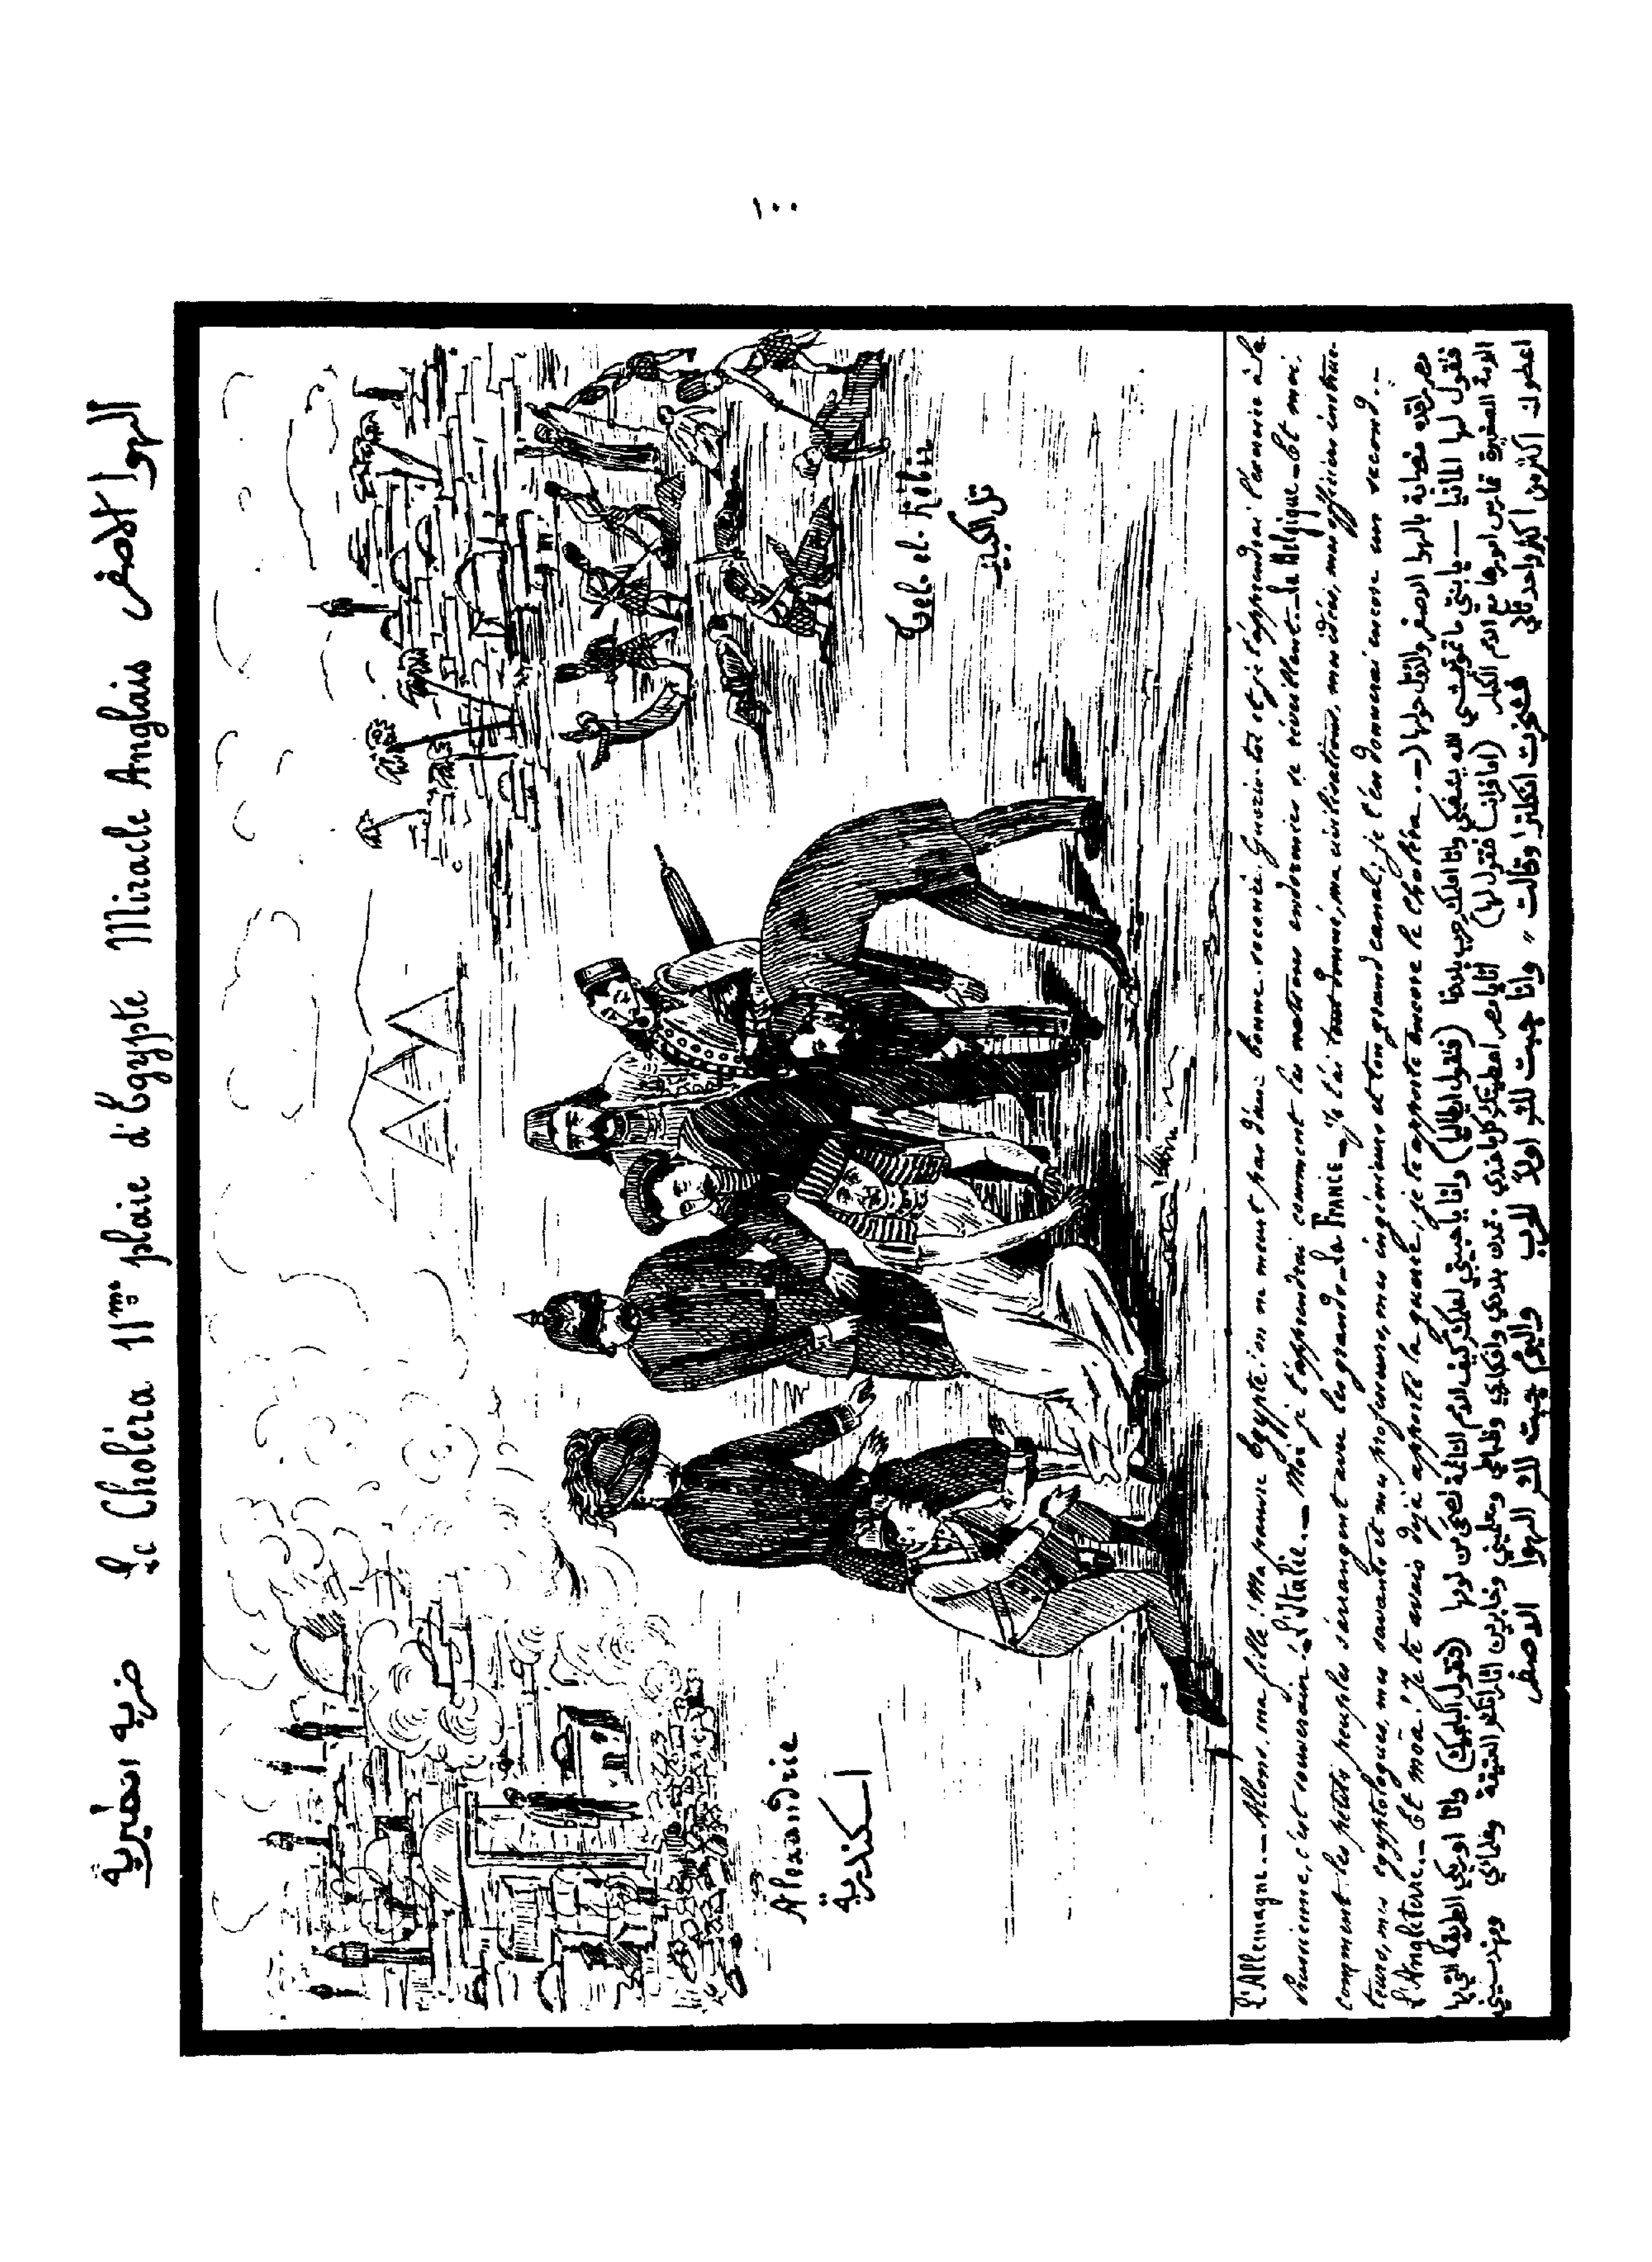 ١٠٠
ضربه انكليزية Le Choléra 11me plaie d'Egypte Miracle Anglais الهوا الاصفر
Alexandrie
اسكندرية
Tel-el-Kébir
تل الكبير
L'Allemagne._ Allons, ma fille! Ma pauvre Egypte! on ne meurt pas d'une bonne saignée. Guéris-toi et je t'apprendrai l'exercice à la
Prussienne, c'est souverain._ L'Italie._ Moi je t'apprendrai comment les nations endormies se réveillent._ La Belgique._ Et moi
comment les petits peuples s'arrangent avec les grands._ La France._ Je t'ai tout donné, ma civilisation, mes idées, mes officiers instruc-
teurs, mes egyptologues, mes savants et mes professeurs, mes ingénieurs et ton grand canal; je t'en donnerai encore un second._
L'Angleterre._ Et moâ! Je te avais déjà apporté la guerre, je te apporte encore le choléra._ مصر راقده مصابة بالهوا الاصفر والدول حولها)
فتقول لها المانيا — يا بنتي ما تموتيشي الله يشفيكي وانا اعلمك حرب بلادنا (فتقول ايطاليا) وانا يا حبيبتي اعلمك كيف الامم النائمة تصحى من نومها (فتقول البلجيك) وانا اوريكي الطريقة التي بها
الامة الصغيرة امورها مع الامم الكبار (اما فرانسا فتقول لها) انا يا مصر اعطيتك كل ما عندي تمدن بلادي وافكاري وضباطي ومعلميني العتيقة وعلمائي ومهندسيني
اعطوك اكثر من واحد تاني انكلترا وقالت ,, وانا جبت لك اولاً الحرب واليوم جبت لك الهوا الاصفر